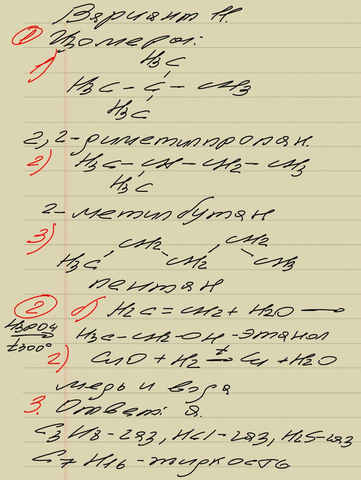 Вариант II.
① Изомеры:
1) H3C
H3C – C – CH3
H3C
2,2-диметилпропан.
2) H3C – CH – CH2 – CH3
H3C
2-метилбутан
3) CH2 CH2
H3C CH2 CH3
пентан
② б) H2C = CH2 + H2O →
H3PO4
t300° H3C-CH2-OH - этанол
2) CuO + H2 t→ Cu + H2O
медь и вода
3. Ответ: а.
C3H8-газ, HCl-газ, H2S-газ
C7H16-жидкость